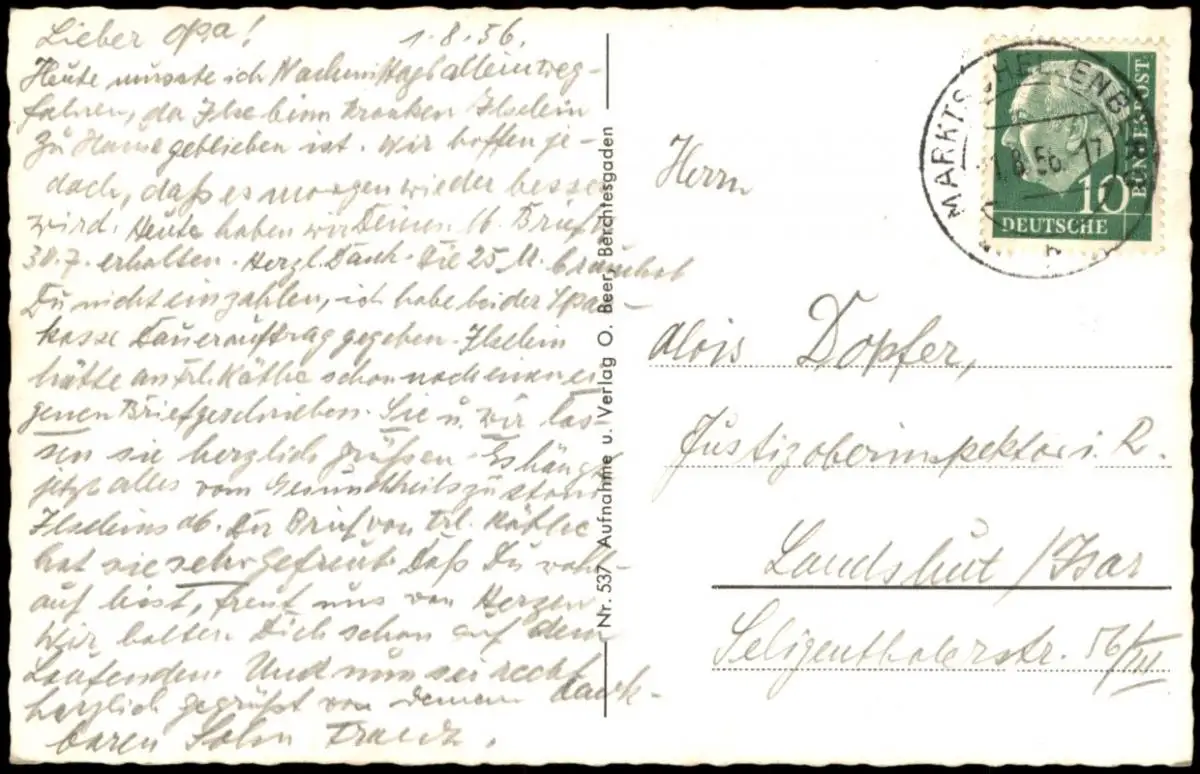 Lieber Opa! 1.8.56.
Heute musste ich Nachmittags allein weg-
fahren, da Ilse beim kranken Ilselein
zu Hause geblieben ist. Wir hoffen je-
doch, daß es morgen wieder besser
wird. Heute haben wir Deinen Brief v.
30.7. erhalten. Herzl. Dank. Die 25 M. brauchst
Du nicht einzahlen, ich habe bei der Spar-
kasse Dauerauftrag gegeben. Ilselein
hätte an Frl. Käthe schon noch einen ei-
genen Brief geschrieben. Sie u. wir las-
sen sie herzlich grüßen. Es hängt
jetzt alles vom Gesundheitszustand
Ilseleins ab. Der Brief von Frl. Käthe
hat sie sehr gefreut. Daß Du wohl-
auf bist, freut uns von Herzen.
Wir halten Dich schon auf dem
Laufenden. Und nun sei recht
herzlich gegrüßt von Deinem dank-
baren Sohn
Nr. 537 Aufnahme u. Verlag O. Beer, Berchtesgaden
MARKTSCHELLENBERG
1.8.56.-17
10
DEUTSCHE
BUNDESPOST
Herrn
Alois Dopfer,
Justizoberinspektor i. R.
Landshut / Isar
Seligenthalerstr. 56/III